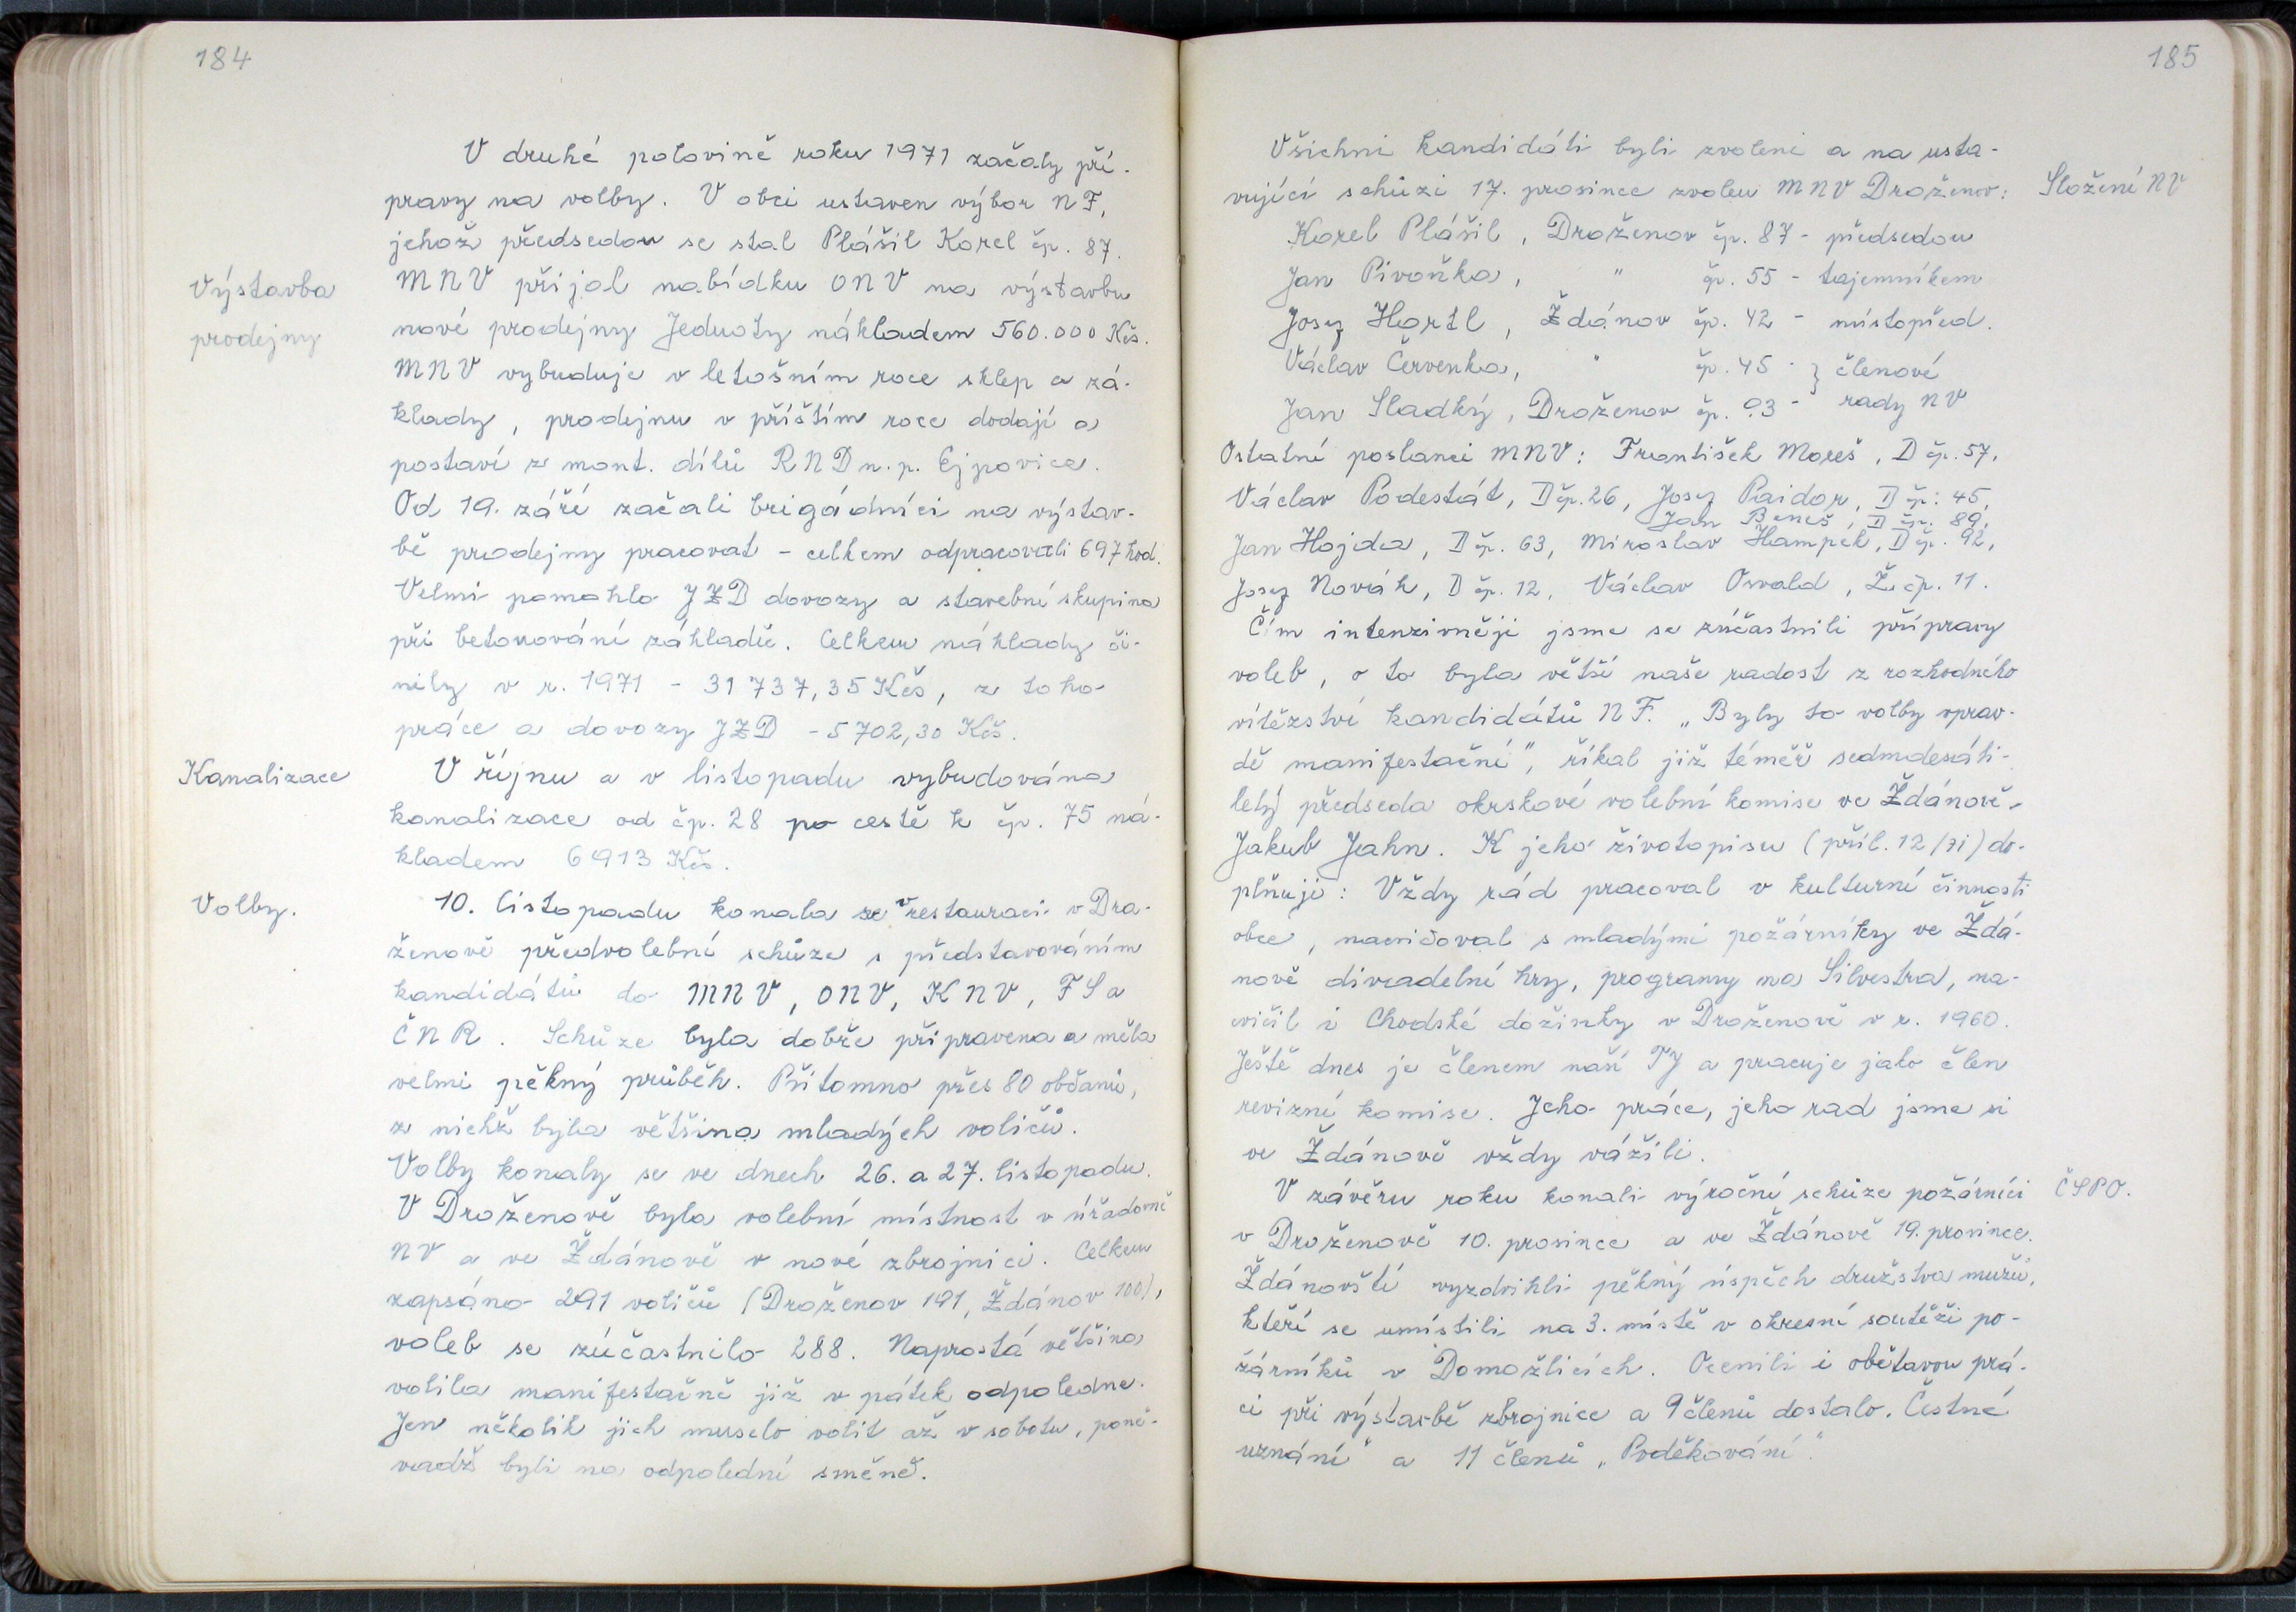 184
V druhé polovině roku 1971 začaly pří-
pravy na volby. V obci ustaven výbor NF,
jehož předsedou se stal Plášil Karel čp. 87.
Výstavba
prodejny
MNV přijal nabídku ONV na výstavbu
nové prodejny Jednoty nákladem 560.000 Kčs.
MNV vybuduje v letošním roce sklep a zá-
klady, prodejnu v příštím roce dodají a
postaví z mont. dílů RND n.p. Ejpovice.
Od 19. září začali brigádníci na výstav-
bě prodejny pracovat - celkem odpracovali 697 hod.
Velmi pomohlo JZD dovozy a stavební skupina
při betonování základů. Celkem náklady či-
nily v r. 1971 - 31 737,35 Kčs, z toho
práce a dovozy JZD - 5 702,30 Kčs.
Kanalizace
V říjnu a v listopadu vybudována
kanalizace od čp. 28 po cestě k čp. 75 ná-
kladem 6 913 Kčs.
Volby.
10. listopadu konala se v restauraci v Dra-
ženově předvolební schůze s představováním
kandidátů do MNV, ONV, KNV, FS a
ČNR. Schůze byla dobře připravena a měla
velmi pěkný průběh. Přítomno přes 80 občanů,
z nichž byla většina mladých voličů.
Volby konaly se ve dnech 26. a 27. listopadu.
V Draženově byla volební místnost v úřadovně
NV a ve Ždánově v nové zbrojnici. Celkem
zapsáno 291 voličů (Draženov 191, Ždánov 100),
voleb se zúčastnilo 288. Naprostá většina
volila manifestačně již v pátek odpoledne.
Jen několik jich muselo volit až v sobotu, poně-
vadž byli na odpolední směně.
185
Všichni kandidáti byli zvoleni a na usta-
vující schůzi 17. prosince zvolen MNV Draženov:
Složení NV
Karel Plášil, Draženov čp. 87 - předsedou
Jan Pivoňka, " čp. 55 - tajemníkem
Josef Hartl, Ždánov čp. 42 - místopřed.
Václav Červenka, " čp. 45 - } členové
Jan Sladký, Draženov čp. 93 - rady NV
Ostatní poslanci MNV: František Mareš, D čp. 57,
Václav Podestát, D čp. 26, Josef Paidar, D čp: 45,
Jan Beneš, D čp. 89,
Jan Hojda, D čp. 63, Miroslav Hampek, D čp. 92,
Josef Novák, D čp. 12, Václav Osvald, Ž čp. 11.
Čím intenzivněji jsme se zúčastnili přípravy
voleb, o to byla větší naše radost z rozhodného
vítězství kandidátů NF. „Byly to volby oprav-
dě manifestační", říkal již téměř sedmdesáti-
letý předseda okrskové volební komise ve Ždánově-
Jakub Jahn. K jeho životopisu (příl. 12/71) do-
plňuji: Vždy rád pracoval v kulturní činnosti
obce, nacvičoval s mladými požárníky ve Ždá-
nově divadelní hry, programy na Silvestra, na-
cvičil i Chodské dožínky v Draženově v r. 1960.
Ještě dnes je členem naší TJ a pracuje jako člen
revizní komise. Jeho práce, jeho rad jsme si
ve Ždánově vždy vážili.
V závěru roku konali výroční schůze požárníci
ČSPO.
v Draženově 10. prosince a ve Ždánově 19. prosince.
Ždánovští vyzdvihli pěkný úspěch družstva mužů,
kteří se umístili na 3. místě v okresní soutěži po-
žárníků v Domažlicích. Ocenili i obětavou prá-
ci při výstavbě zbrojnice a 9 členů dostalo „Čestné
uznání" a 11 členů „Poděkování".